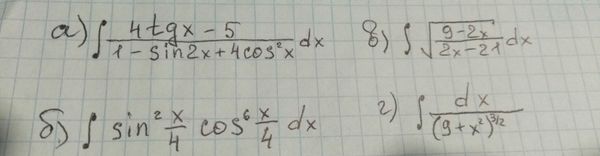 а) ∫ (4tgx − 5)/(1 − sin2x + 4cos²x) dx
в) ∫ √((9−2x)/(2x−21)) dx
б) ∫ sin² x/4 cos⁶ x/4 dx
г) ∫ dx/(9+x²)^(3/2)